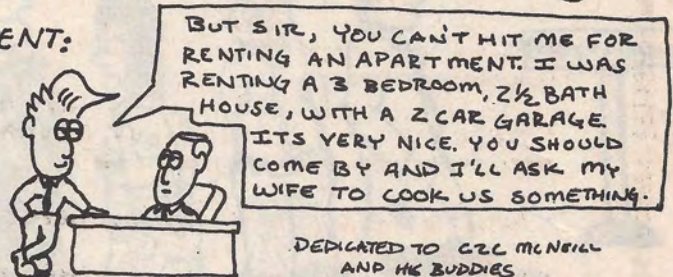 ENT:
BUT SIR, YOU CAN'T HIT ME FOR
RENTING AN APARTMENT. I WAS
RENTING A 3 BEDROOM, 2½ BATH
HOUSE, WITH A 2 CAR GARAGE.
ITS VERY NICE. YOU SHOULD
COME BY AND I'LL ASK MY
WIFE TO COOK US SOMETHING.
DEDICATED TO C2C MCNEILL
AND HIS BUDDIES